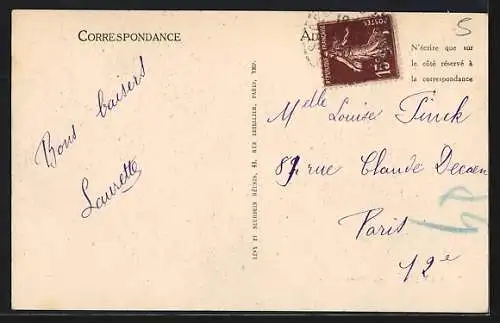 CORRESPONDANCE
N'écrire que sur
le côté réservé à
la correspondance
Bons baisers
Laurette
LÉVY ET NEURDEIN RÉUNIS, 44, RUE LETELLIER, PARIS, IMP.
POSTES
15
Melle Louise Finck
89 rue Claude Decaen
Paris
12e
5